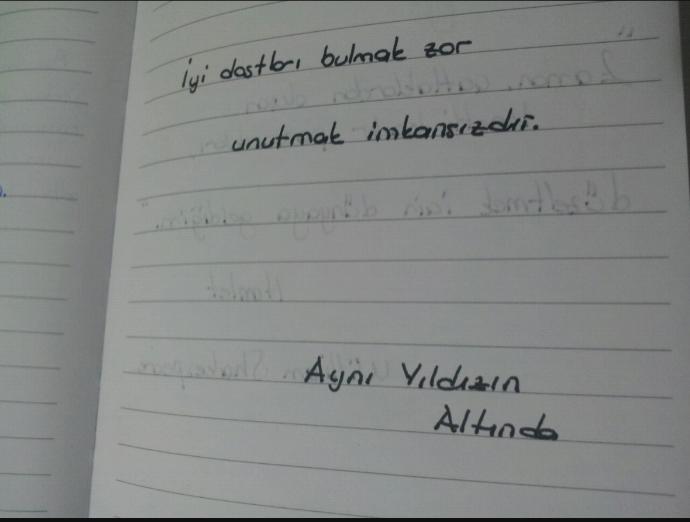 İyi dostları bulmak zor
unutmak imkansızdır.
Aynı Yıldızın
Altında